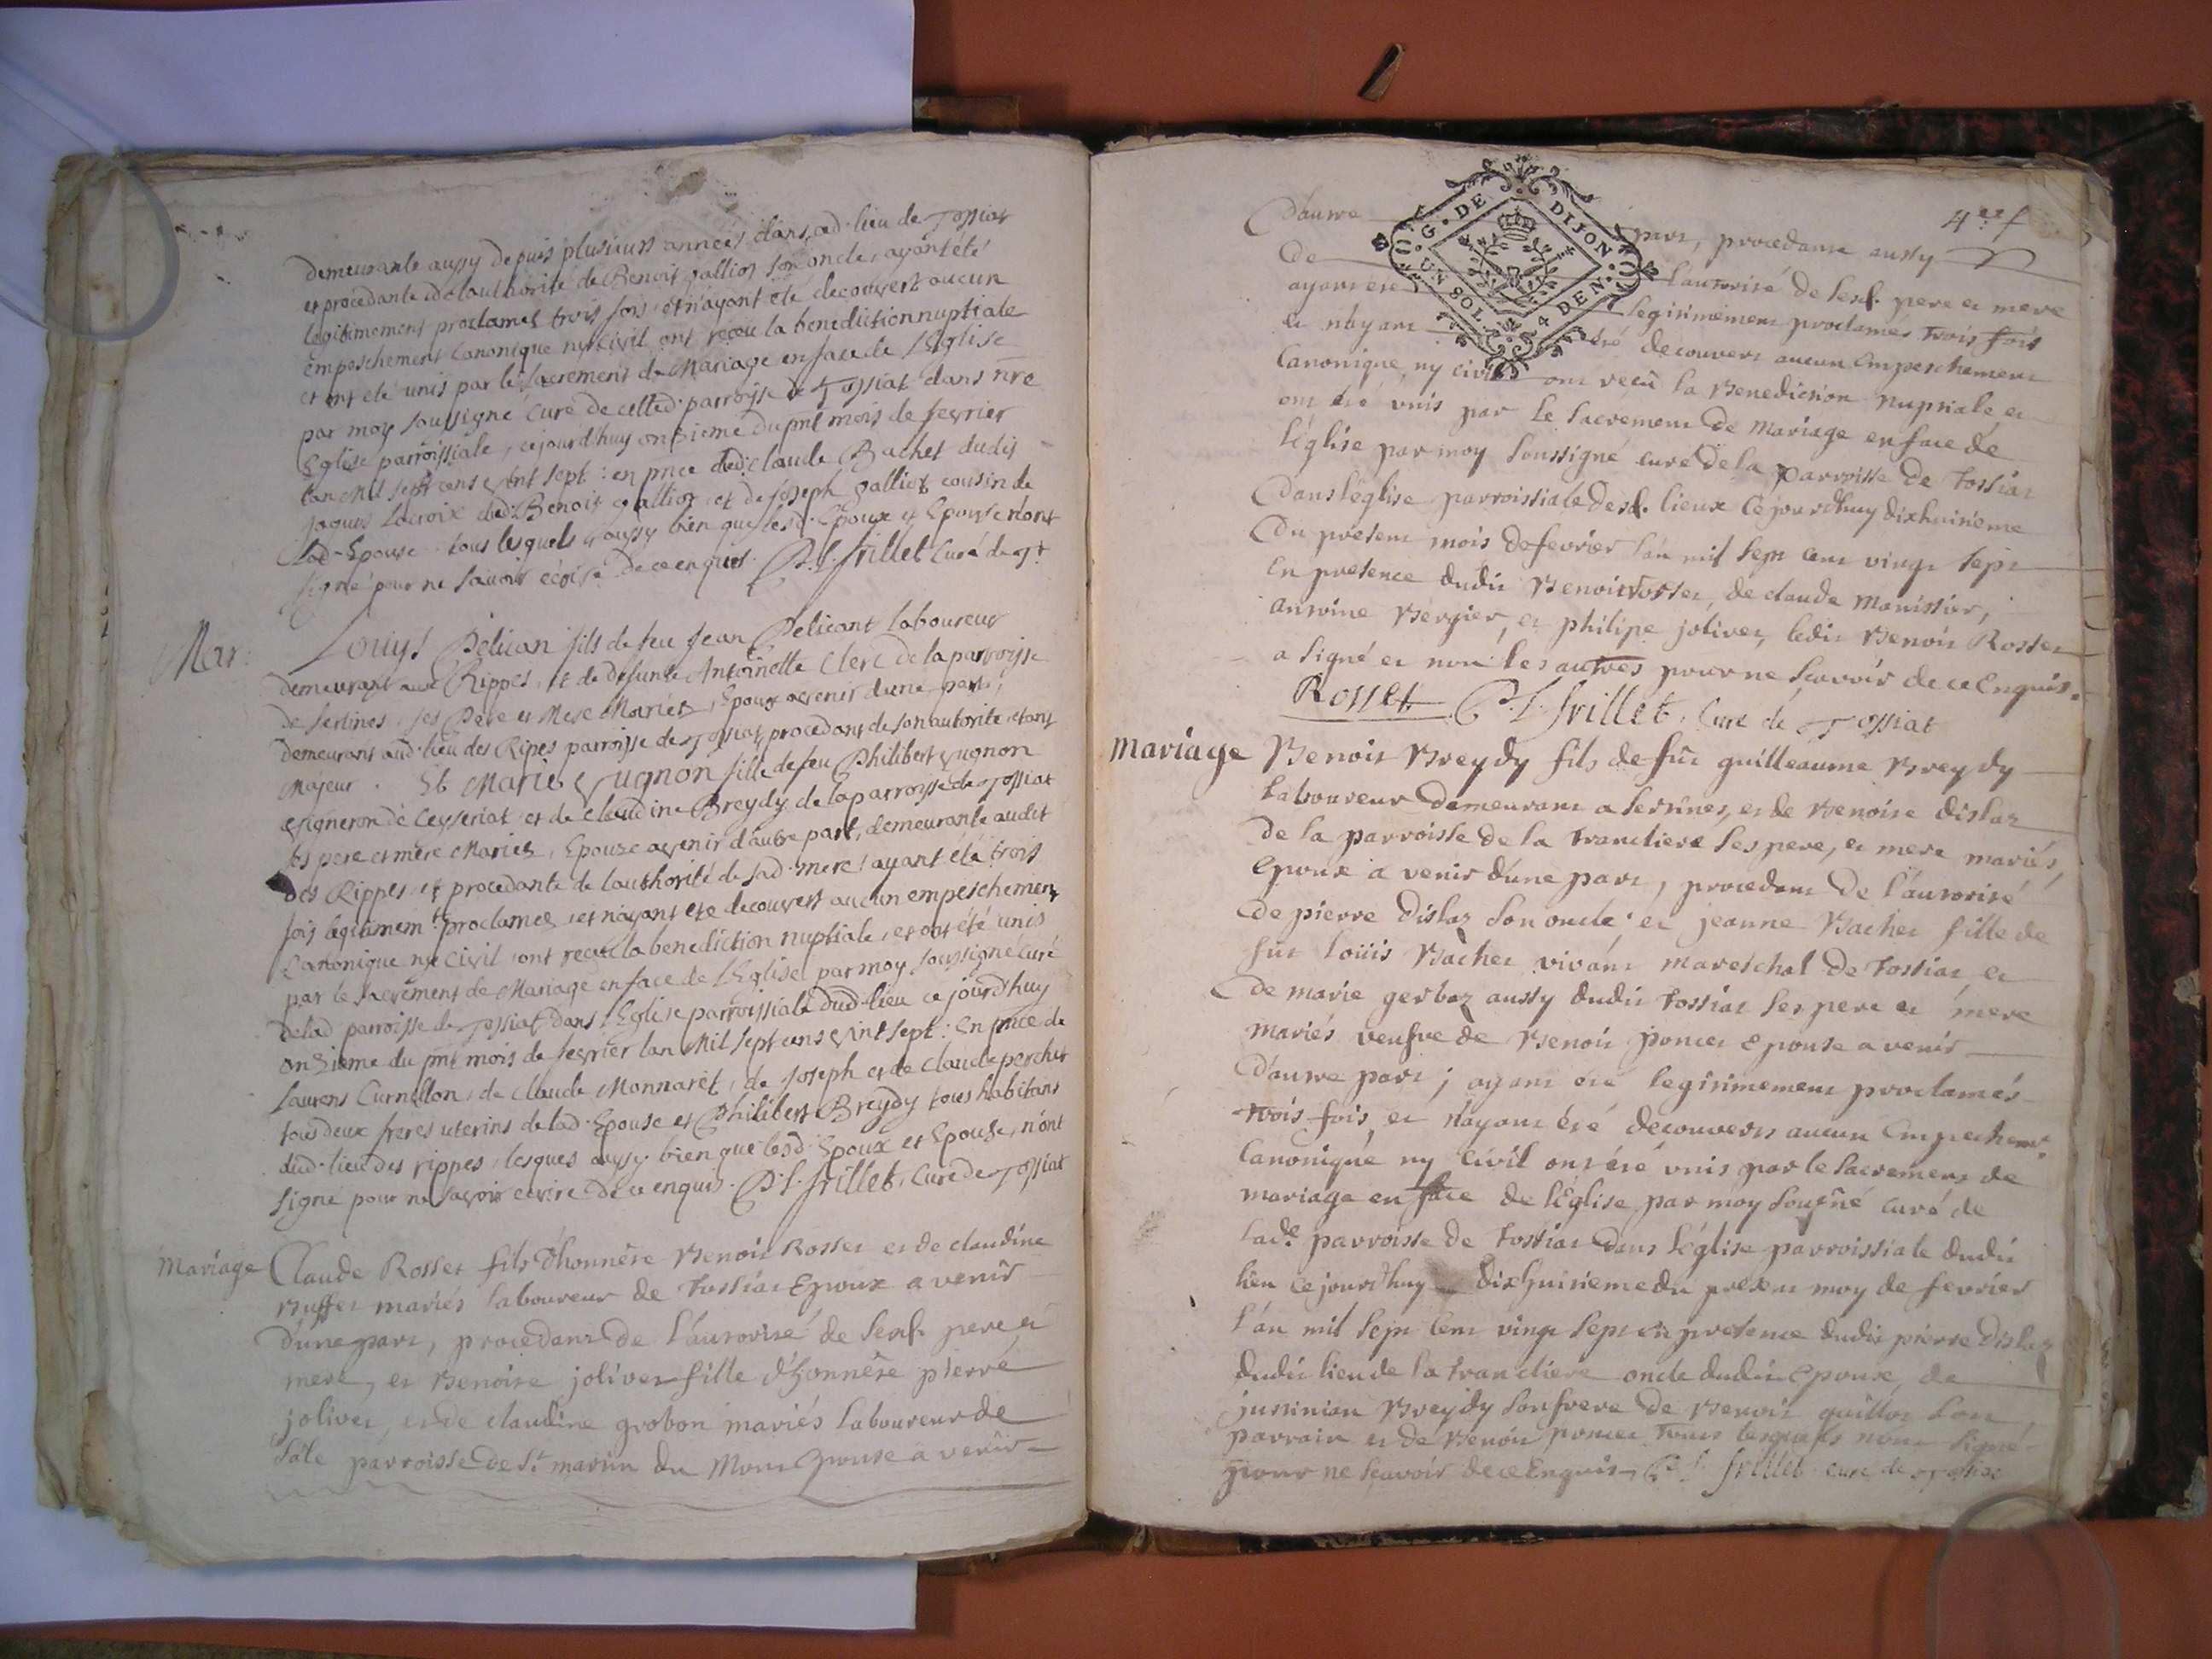 demeurante aussy depuis plusieurs années dans led. lieu de Tossiat
et procedante de lauthorité de Benoit galliot son oncle, ayant été
legitimement proclamés trois fois et n'ayant été decouvert aucun
empeschement Canonique ny civil ont receu la benediction nuptiale
et ont été unis par le sacrement de Mariage en face de l'Eglise
par moy soussigné Curé de cetted. parroisse de Tossiat dans nre
Eglise parroissiale, cejourd'huy onzieme du pnt mois de fevrier
lan Mil sept cens vint sept : en pnce dud. Claude Bachet dudit
Jaques Lacroix dud. Benoit galliot et de Joseph galliot cousin de
lad. Epouse tous lesquels aussy bien que lesd. Epoux et Epouse n'ont
signé pour ne savoir écrire de ce enquis. P. L. frillet Curé de Tt.
Mar: Louys Pelican fils de feu Jean Pelicant laboureur
demeurant aux Rippes, et de defunte Antoinette Clerc de la parroisse
de Sertines, ses Pere et Mere Mariés, Epoux avenir d'une part,
demeurant aud. lieu des Ripes parroisse de Tossiat, procedant de son autorité etant
Majeur. Et Marie Vugnon fille de feu Philibert Vugnon
vigneron de Ceyseriat et de Claudine Breydy de la parroisse de Tossiat
ses pere et mere Mariés, Epouse avenir d'autre part, demeurante audit
des Rippes, et procedante de lauthorité de sad. mere, ayant été trois
fois legitimemt. proclamés, et n'ayant été decouvert aucun empeschement
Canonique ny Civil, ont receu la benediction nuptiale, et ont été unis
par le sacrement de Mariage en face de l'Eglise par moy soussigné Curé
de lad. parroisse de Tossiat dans l'Eglise parroissiale dud. lieu ce jourd'huy
onzieme du pnt mois de fevrier lan Mil sept cens vint sept : En pnce de
Laurens Curnillon, de Claude Monnaret, de Joseph et de Claude perchet
tous deux freres uterins de lad. Epouse et Philibert Breydy tous habitans
dud. lieu des rippes, lesques aussy bien que lesd. Epoux et Epouse, n'ont
signé pour ne savoir ecrire de ce enquis. P. L. frillet, Curé de Tossiat
Mariage Claude Rosset fils d'honnête Benoit Rosset et de claudine
Buffet mariés laboureur de Tossiat Epoux a venir
d'une part, procedant de l'autorité de sesd. pere et
mere, et Benoite jolivet fille d'honnête pierre
jolivet, et de claudine grobon mariés laboureur de
Sale parroisse de St. martin du Mont Epouse a venir
4er f
Dautre part, procedante aussy
De l'autorité de sesd. pere et mere
ayant ete legitimement proclamés trois fois
et n'ayant été decouvert aucun Empeschement
Canonique ny civil ont reçû la Benediction nuptiale et
ont été unis par le sacrement de mariage en face de
l'église par moy soussigné curé de la parroisse de Tossiat
Dans l'église parroissiale desd. lieux cejourd'huy dixhuitieme
Du present mois de fevrier l'an mil sept cent vingt sept
En presence dudit Benoit Rosset, de claude Monissier,
antoine Bergier, et philipe jolivet, ledit Benoit Rosset
a signé et non les autres pour ne sçavoir de ce Enquis.
Rosset P. L. frillet, Curé de Tossiat
Mariage Benoit Breydy fils de fût guilleaume Breydy
Laboureur demeurant a sertines, et de Benoite dislaz
de la parroisse de la trancliere ses pere, et mere mariés,
Epoux a venir d'une part, procedant De l'autorité
De pierre dislaz son oncle et jeanne Bachet fille de
fût loüis Bachet vivant mareschal de Tossiat et
de marie gerbaz aussy dudit Tossiat ses pere et mere
mariés veufve de Benoit poncet Epouse a venir
d'autre part ; ayant été legitimement proclamés
trois fois, et n'ayant été decouvert aucun Empechemt.
Canonique ny Civil ont été unis par le sacrement de
mariage en face de l'Église par moy sousné curé de
lade. parroisse de Tossiat dans l'église parroissiale dudit
lieu ce jourd'huy dixhuitieme du present moy de fevrier
l'an mil sept cent vingt sept en presence dudit pierre dislaz
dudit lieu de la trancliere oncle dudit Epoux, de
justinian Breydy son frere de Benoit guillot son
parrain et de Benoit poncet tous lesquels n'ont signé
pour ne sçavoir de ce Enquis. P. L. frillet curé de Tossiat
G. DE DIJON.
UN SOL. 4 DEN.